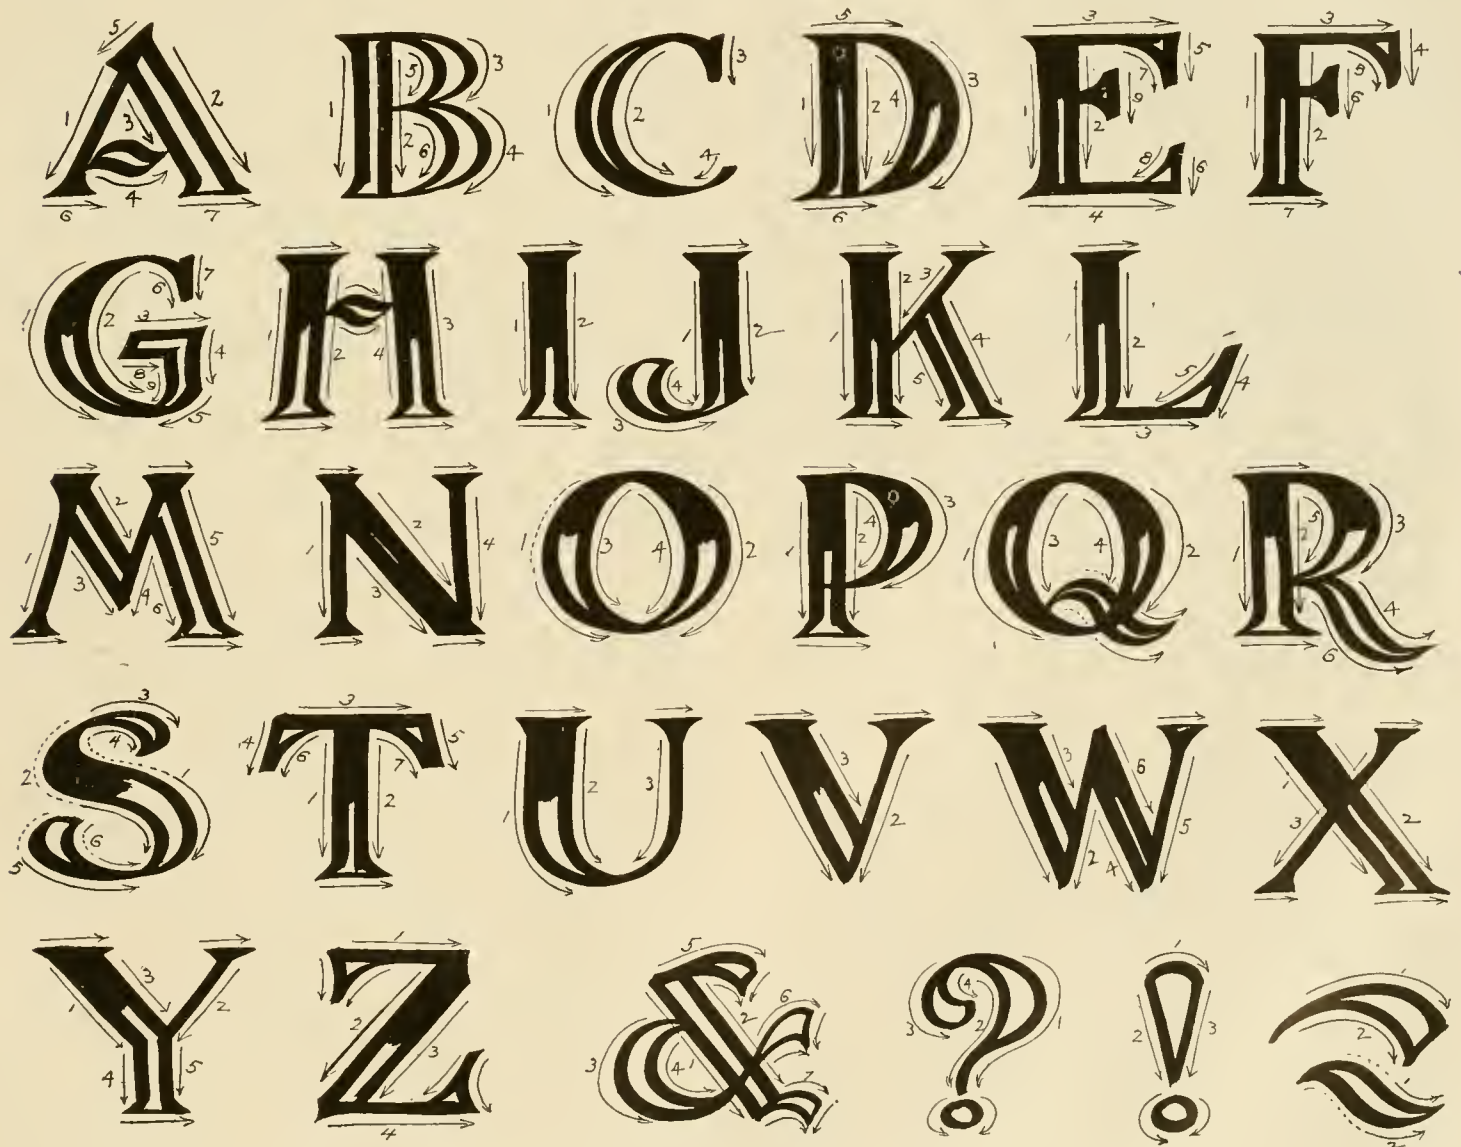 A B C D E F
G H I J K L
M N O P Q R
S T U V W X
Y Z & ? !